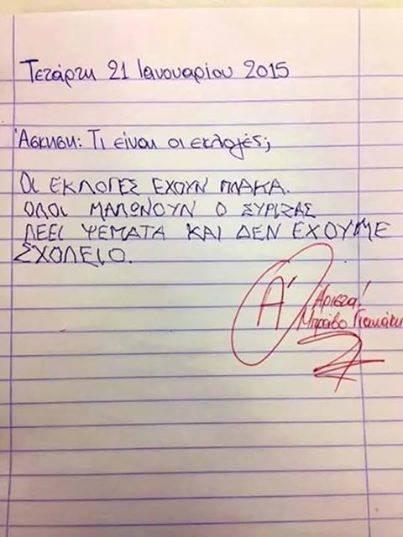 Τετάρτη 21 Ιανουαρίου 2015
Άσκηση: Τι είναι οι εκλογές;
ΟΙ ΕΚΛΟΓΕΣ ΕΧΟΥΝ ΠΛΑΚΑ.
ΟΛΟΙ ΜΑΛΩΝΟΥΝ Ο ΣΥΡΙΖΑΣ
ΛΕΕΙ ΨΕΜΑΤΑ ΚΑΙ ΔΕΝ ΕΧΟΥΜΕ
ΣΧΟΛΕΙΟ.
Α' Άριστα!
Μπράβο Γιαννάκη